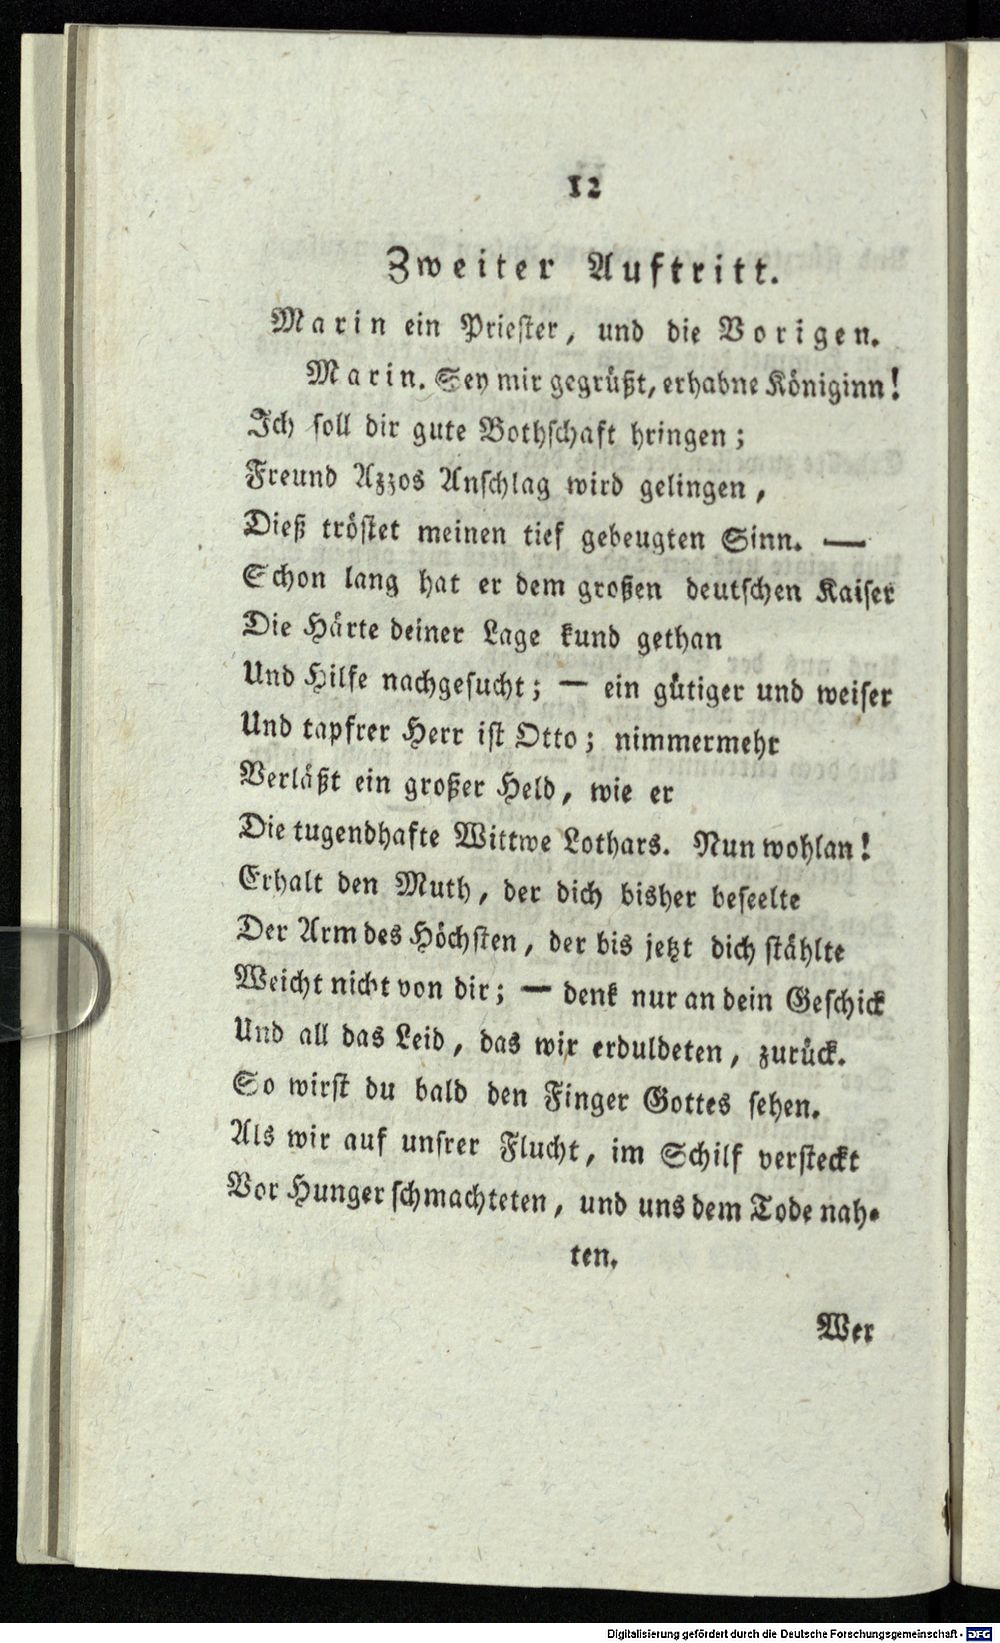 12
Zweiter Auftritt.
Marin ein Priester, und die Vorigen.
Marin. Sey mir gegrüßt, erhabne Königinn!
Ich soll dir gute Bothschaft hringen;
Freund Azzos Anschlag wird gelingen,
Dieß tröstet meinen tief gebeugten Sinn. —
Schon lang hat er dem großen deutschen Kaiser
Die Härte deiner Lage kund gethan
Und Hilfe nachgesucht; — ein gütiger und weiser
Und tapfrer Herr ist Otto; nimmermehr
Verläßt ein großer Held, wie er
Die tugendhafte Wittwe Lothars. Nun wohlan!
Erhalt den Muth, der dich bisher beseelte
Der Arm des Höchsten, der bis jetzt dich stählte
Weicht nicht von dir; — denk nur an dein Geschick
Und all das Leid, das wir erduldeten, zurück.
So wirst du bald den Finger Gottes sehen.
Als wir auf unsrer Flucht, im Schilf versteckt
Vor Hunger schmachteten, und uns dem Tode nah-
ten.
Wer
Digitalisierung gefördert durch die Deutsche Forschungsgemeinschaft - DFG